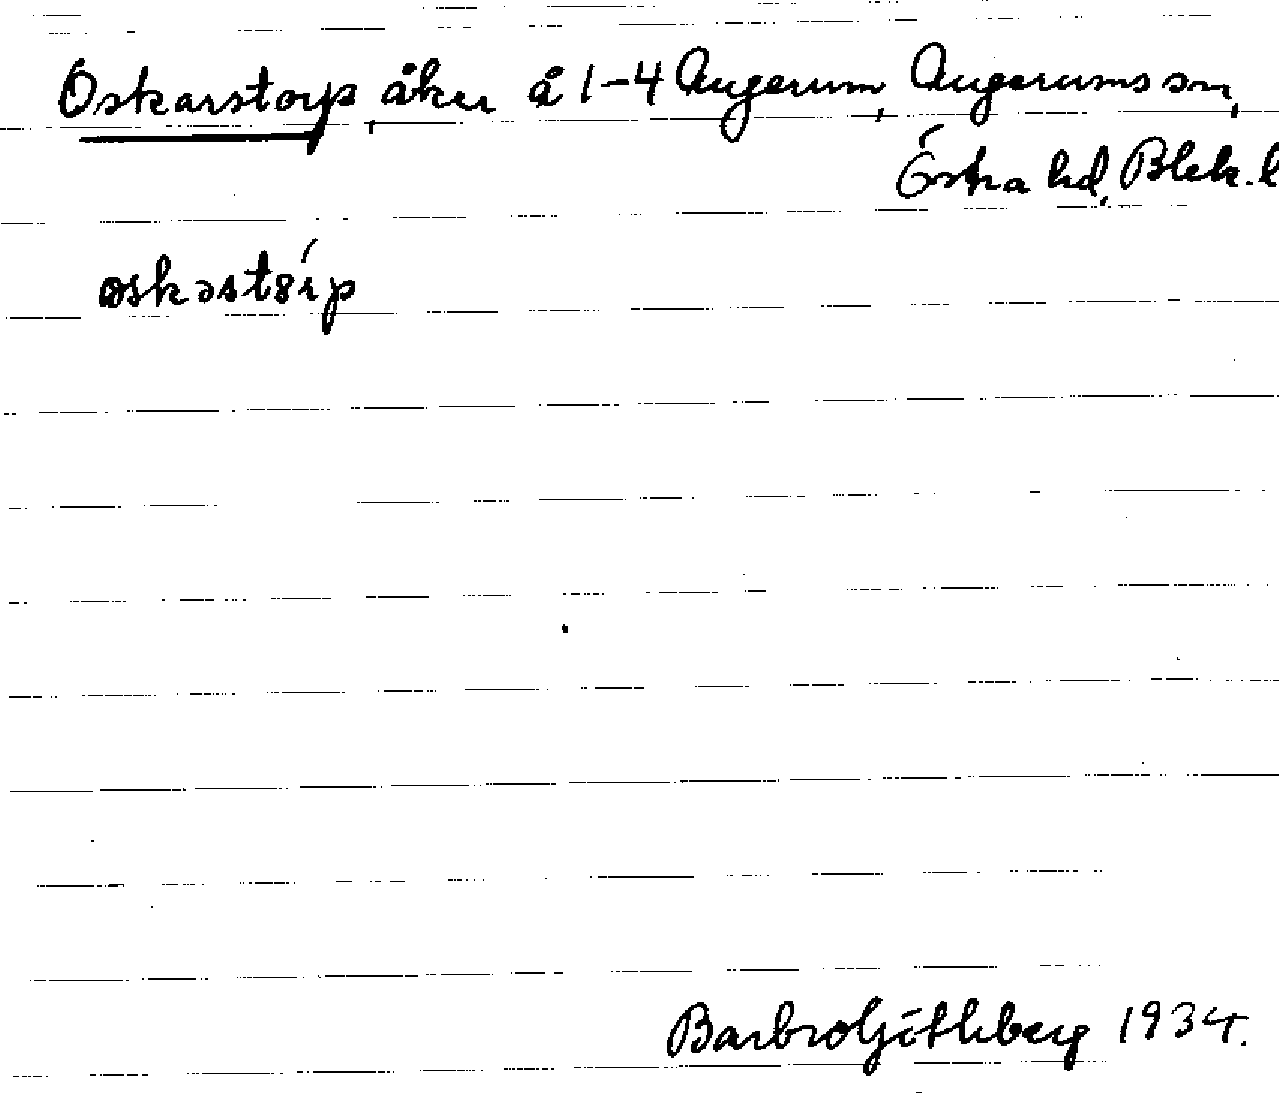 Oskarstorp, åker å 1-4 Augerum, Augerums sn,
Östra hd, Blek. l
oskastorp
Barbro Göthberg 1934.